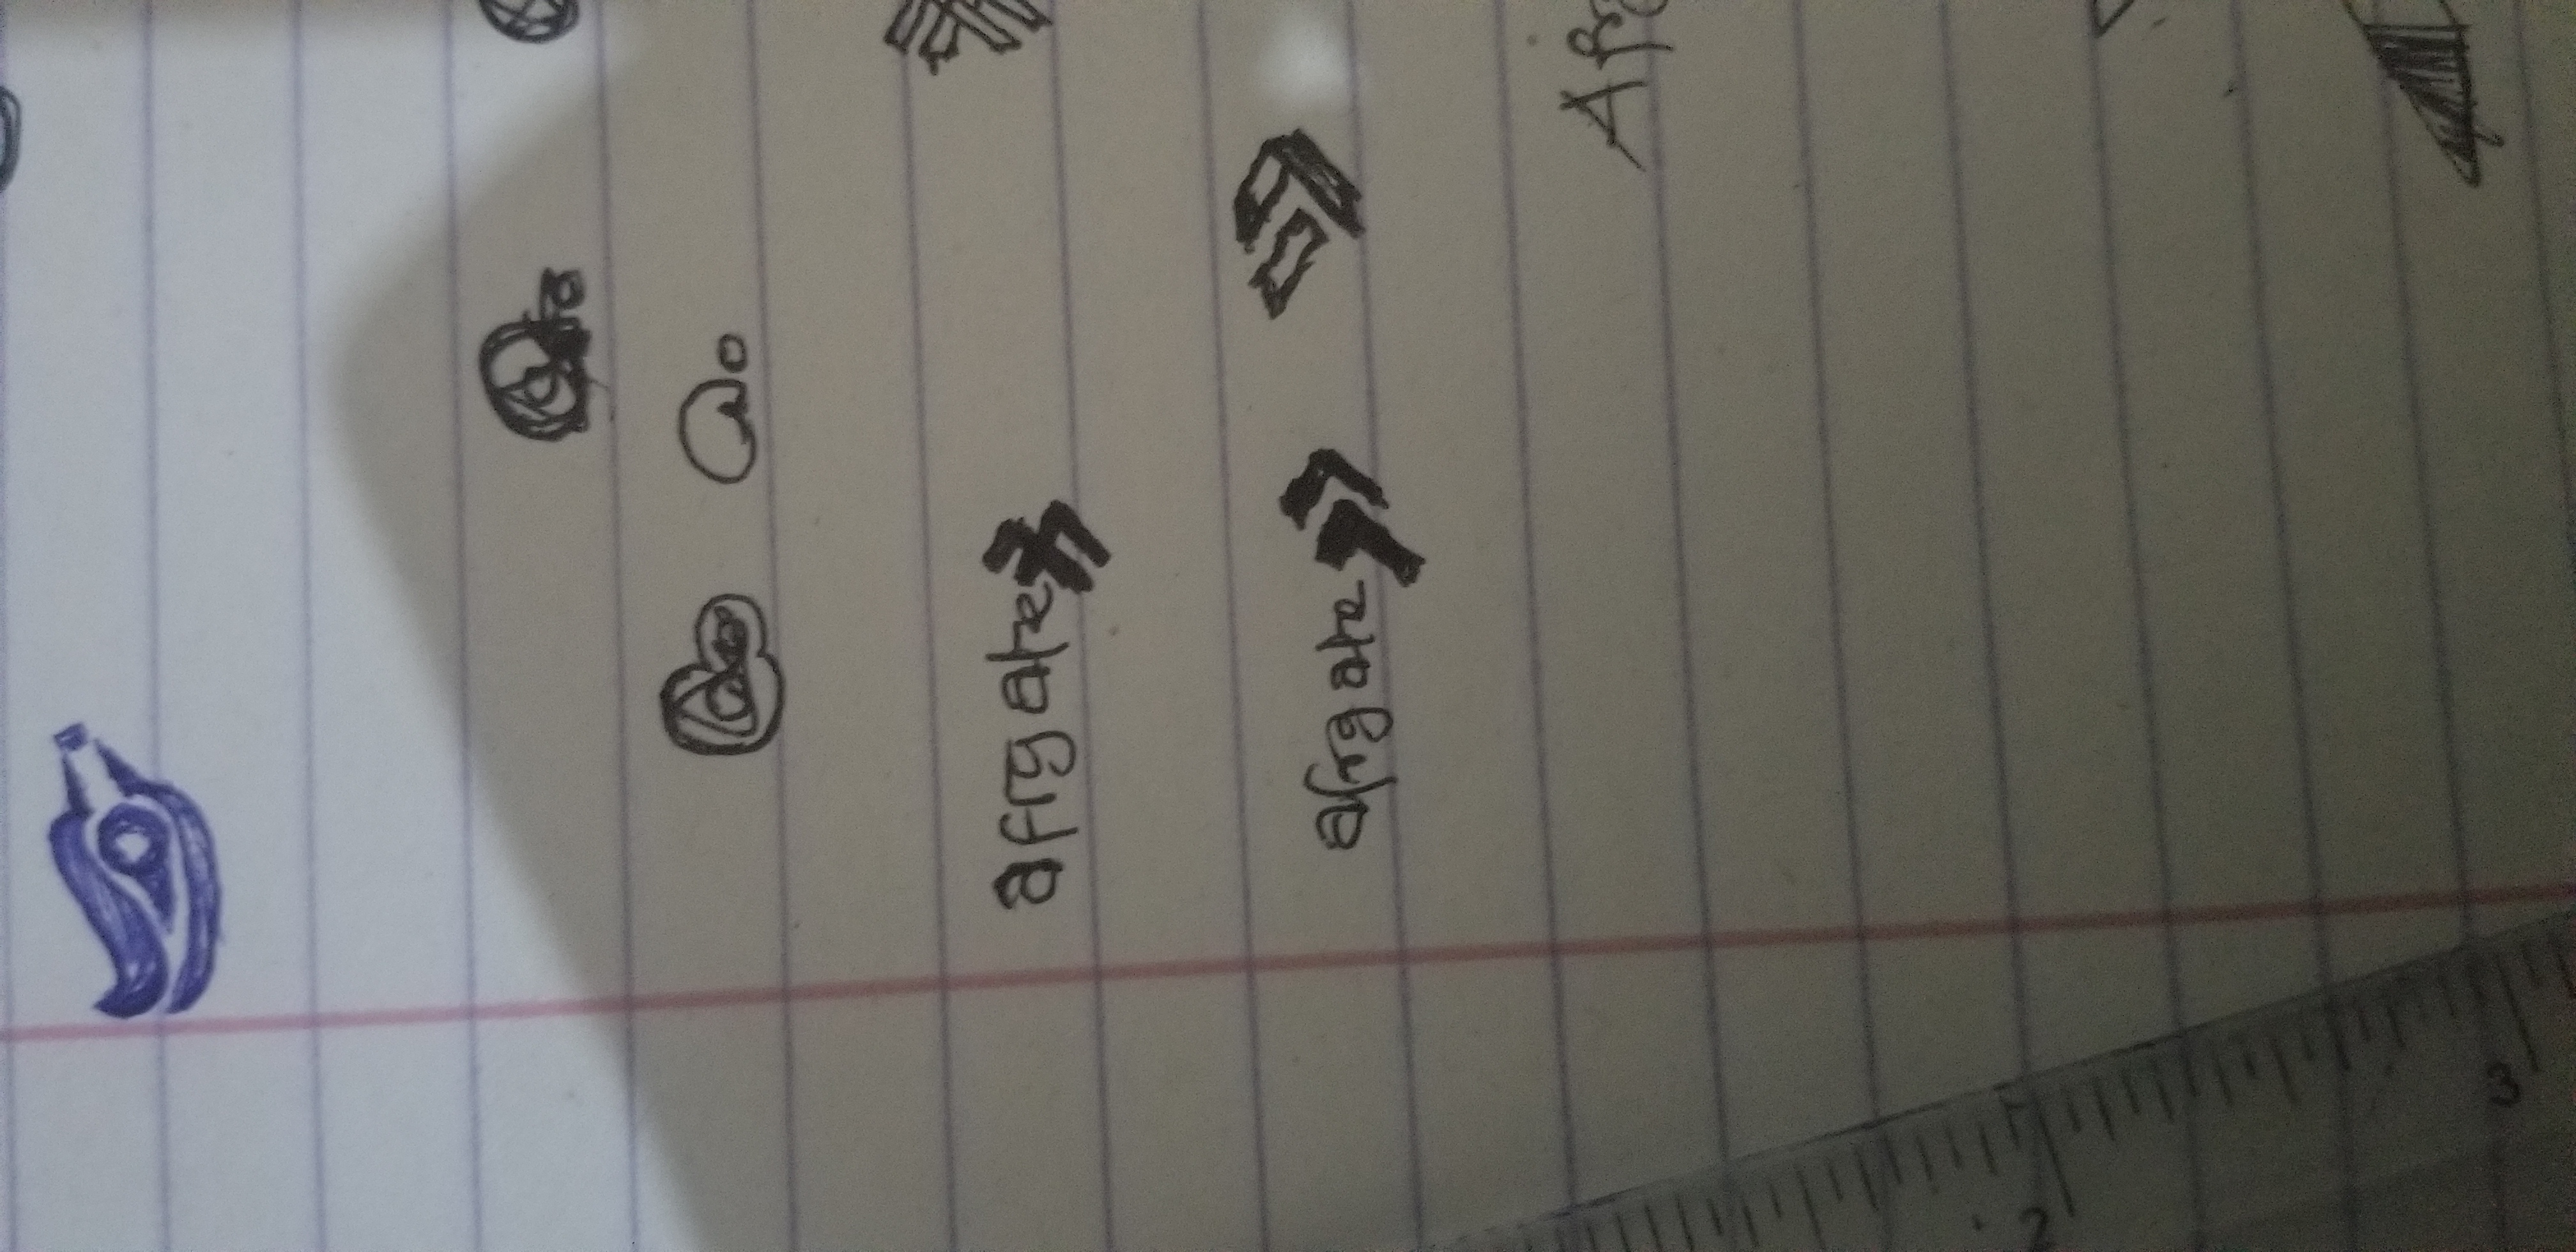 afrgate
afrgate
Afr
2
3